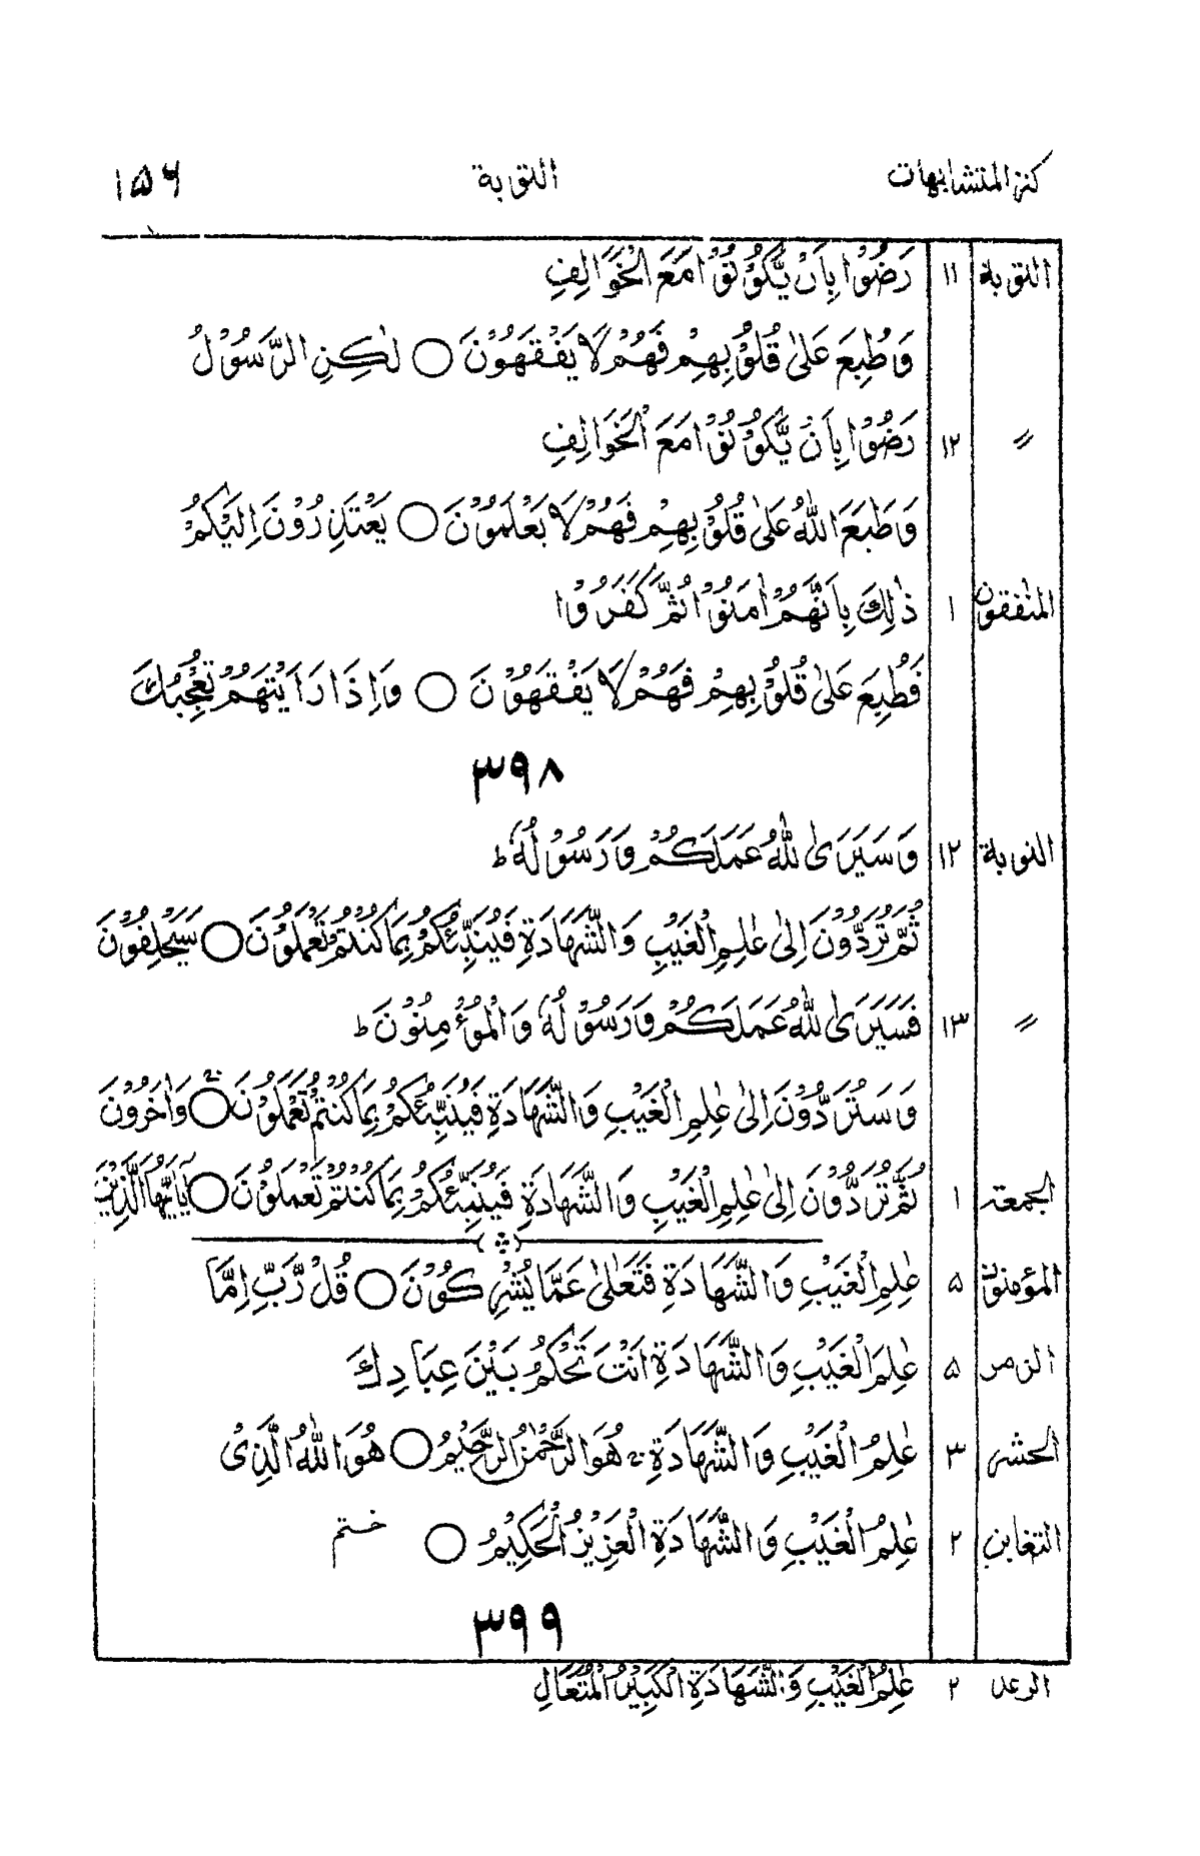 كنز المتشابهات التوبة ١٥٦
التوبة ١١ رَضُوْا بِاَنْ يَّكُوْنُوْا مَعَ الْخَوَالِفِ
وَطُبِعَ عَلٰى قُلُوْبِهِمْ فَهُمْ لَا يَفْقَهُوْنَ ○ لٰكِنِ الرَّسُوْلُ
〃 ١٢ رَضُوْا بِاَنْ يَّكُوْنُوْا مَعَ الْخَوَالِفِ
وَطَبَعَ اللّٰهُ عَلٰى قُلُوْبِهِمْ فَهُمْ لَا يَعْلَمُوْنَ ○ يَعْتَذِرُوْنَ اِلَيْكُمْ
المنٰفقون ١ ذٰلِكَ بِاَنَّهُمْ اٰمَنُوْا ثُمَّ كَفَرُوْا
فَطُبِعَ عَلٰى قُلُوْبِهِمْ فَهُمْ لَا يَفْقَهُوْنَ ○ وَاِذَا رَاَيْتَهُمْ تُعْجِبُكَ
٣٩٨
التوبة ١٢ وَسَيَرَى اللّٰهُ عَمَلَكُمْ وَرَسُوْلُهٗ ط
ثُمَّ تُرَدُّوْنَ اِلٰى عٰلِمِ الْغَيْبِ وَالشَّهَادَةِ فَيُنَبِّئُكُمْ بِمَا كُنْتُمْ تَعْمَلُوْنَ ○ سَيَحْلِفُوْنَ
〃 ١٣ فَسَيَرَى اللّٰهُ عَمَلَكُمْ وَرَسُوْلُهٗ وَالْمُؤْمِنُوْنَ ط
وَسَتُرَدُّوْنَ اِلٰى عٰلِمِ الْغَيْبِ وَالشَّهَادَةِ فَيُنَبِّئُكُمْ بِمَا كُنْتُمْ تَعْمَلُوْنَ ○ وَاٰخَرُوْنَ
الجمعة ١ ثُمَّ تُرَدُّوْنَ اِلٰى عٰلِمِ الْغَيْبِ وَالشَّهَادَةِ فَيُنَبِّئُكُمْ بِمَا كُنْتُمْ تَعْمَلُوْنَ ○ يٰۤاَيُّهَا الَّذِيْنَ
المؤمنون ٥ عٰلِمِ الْغَيْبِ وَالشَّهَادَةِ فَتَعٰلٰى عَمَّا يُشْرِكُوْنَ ○ قُلْ رَّبِّ اِمَّا
الزمر ٥ عٰلِمَ الْغَيْبِ وَالشَّهَادَةِ اَنْتَ تَحْكُمُ بَيْنَ عِبَادِكَ
الحشر ٣ عٰلِمُ الْغَيْبِ وَالشَّهَادَةِ ۚ هُوَ الرَّحْمٰنُ الرَّحِيْمُ ○ هُوَ اللّٰهُ الَّذِيْ
التغابن ٢ عٰلِمُ الْغَيْبِ وَالشَّهَادَةِ الْعَزِيْزُ الْحَكِيْمُ ○ ختم
٣٩٩
الرعد ٢ عٰلِمُ الْغَيْبِ وَالشَّهَادَةِ الْكَبِيْرُ الْمُتَعَالِ